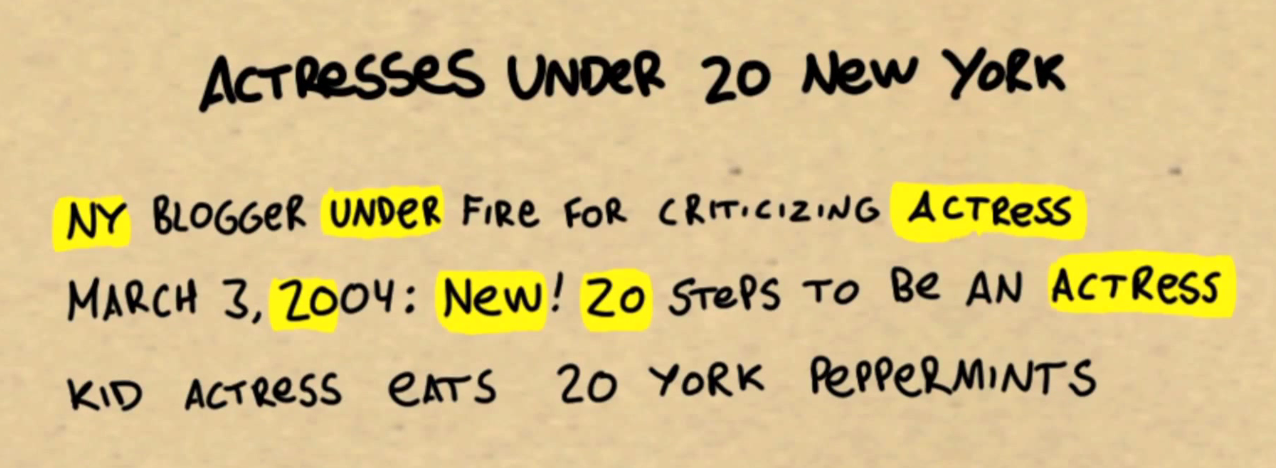 ACTRESSES UNDER 20 NEW YORK
NY BLOGGER UNDER FIRE FOR CRITICIZING ACTRESS
MARCH 3, 2004: NEW! 20 STEPS TO BE AN ACTRESS
KID ACTRESS EATS 20 YORK PEPPERMINTS